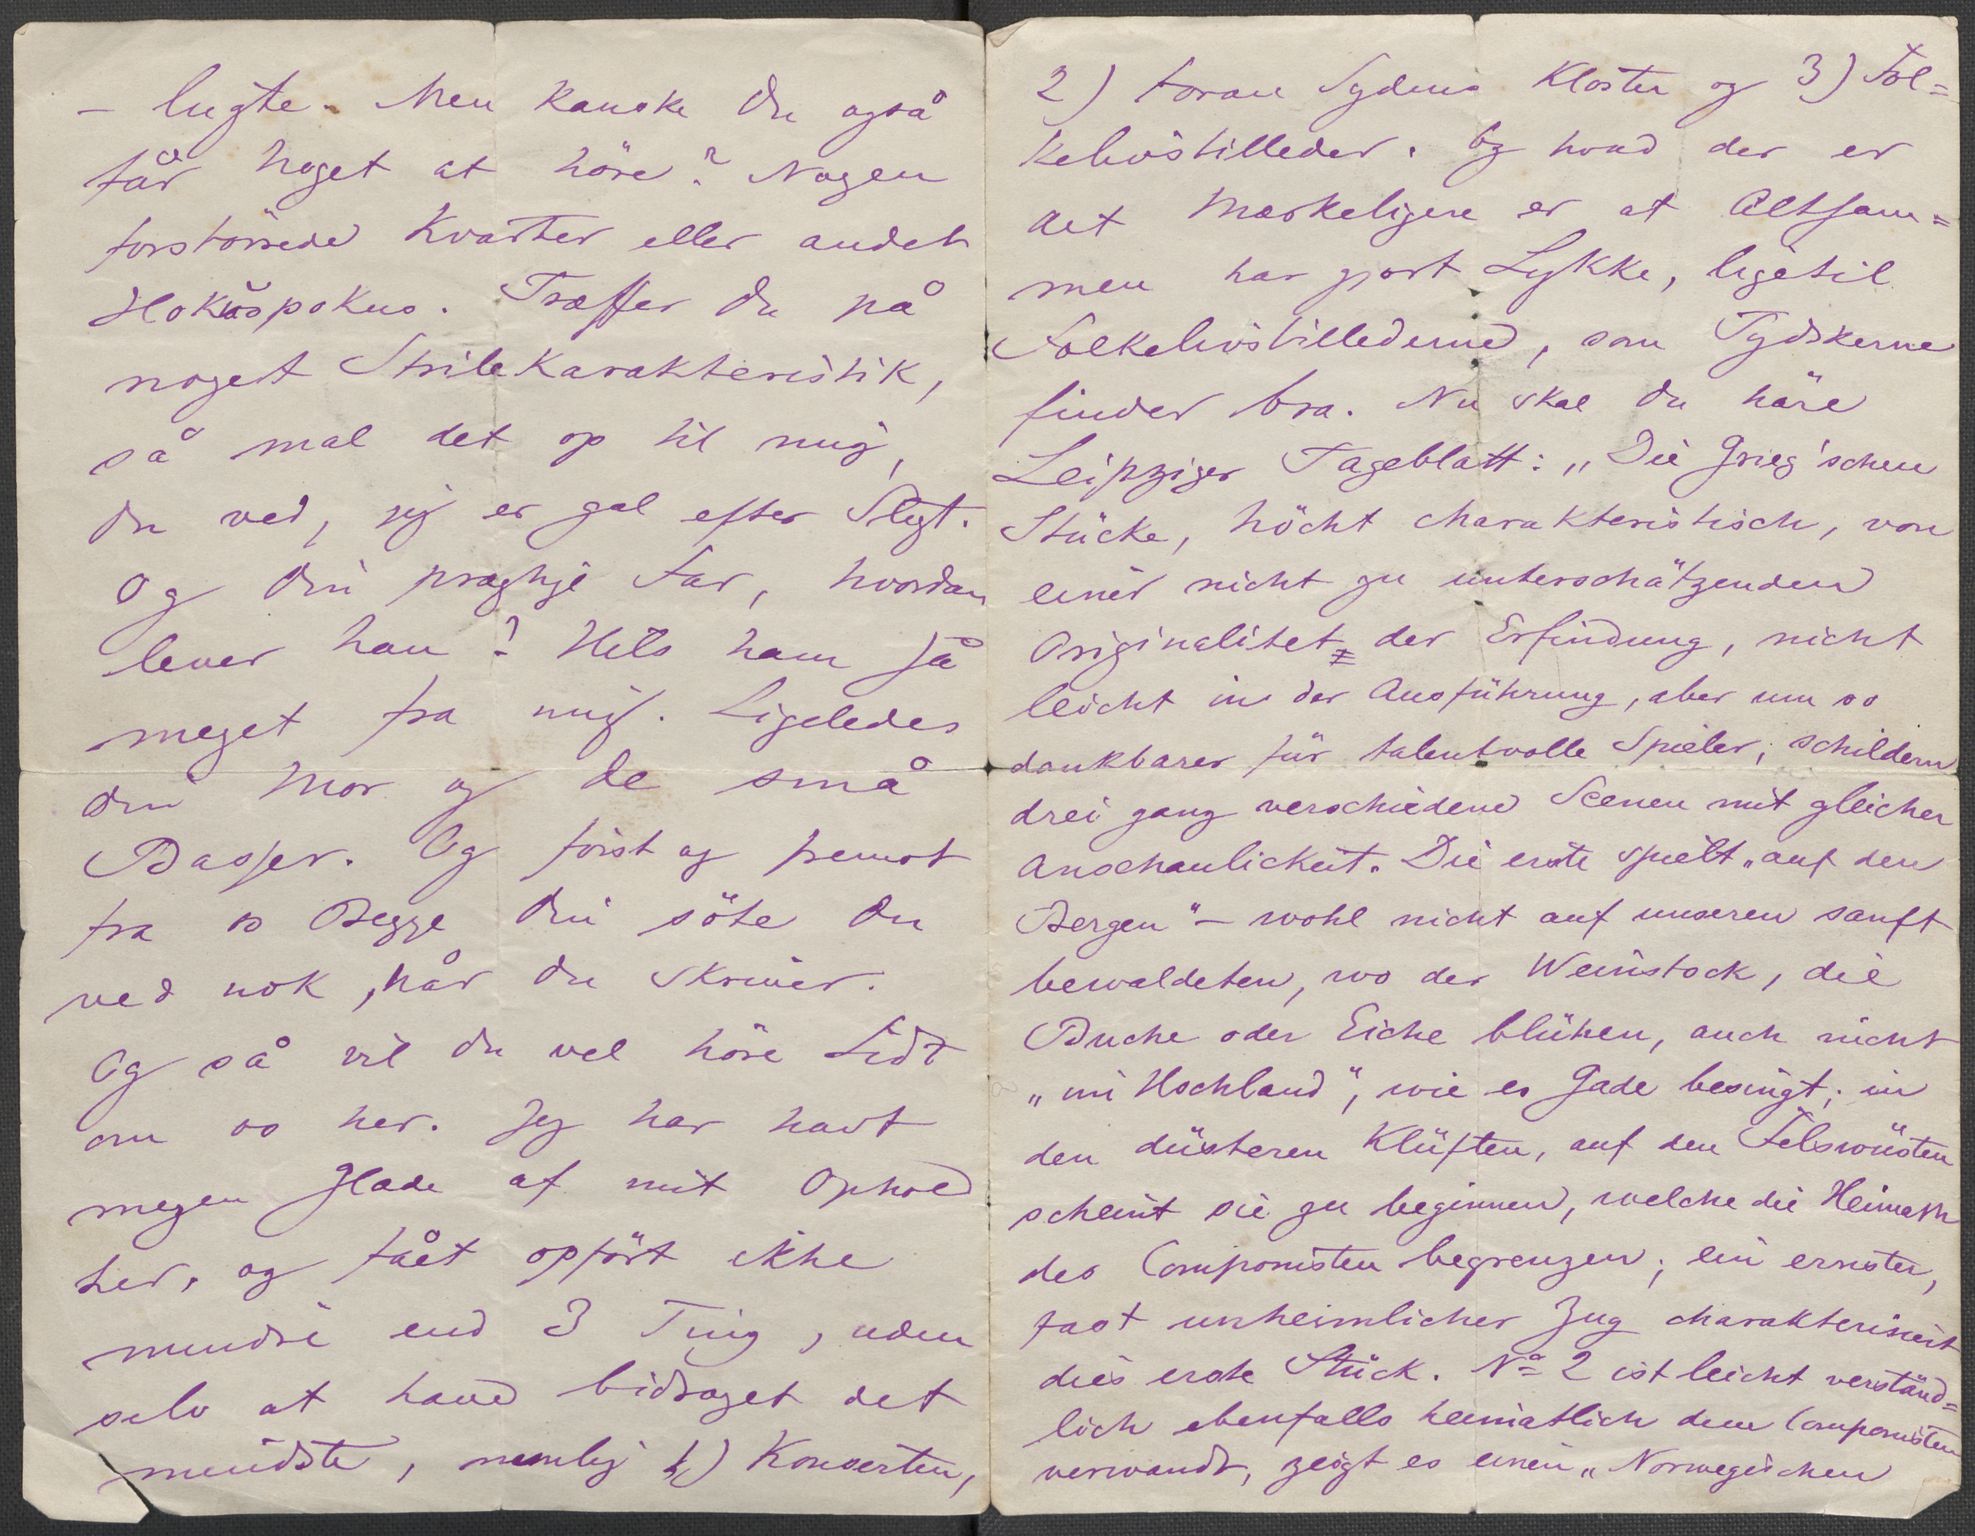 – lugte. Men kanske Du også
får noget at höre? Nogen
forstörrede Kvarter eller andet
Hokuspokus. Træffer Du på
noget Strilekarakteristik,
så mal det op til mig,
Du ved, jeg er gal efter Sligt.
Og Din prægtige Far, hvordan
lever han? Hils ham så
meget fra mig. Ligeledes
Din Mor og de små
Basser. Og först og fremst
fra os Begge Din söte Du
ved nok, når Du skriver.
Og så vil Du vel höre Lidt
om os her. Jeg har havt
megen Glæde af mit Ophold
her, og fået opfört ikke
mindre end 3 Ting, uden
selv at have bidraget det
mindste, nemlig 1) Konserten,
2) Foran Sydens Kloster og 3) Fol=
kelivsbilleder. Og hvad der er
det Mærkeligere er at Altsam=
men har gjort Lykke, ligetil
Folkelivsbillederne, som Tydskerne
finder bra. Nu skal Du høre
Leipziger Tageblatt: „Die Grieg'schen
Stücke, höcht charakteristisch, von
einer nicht zu unterschätzenden
Originalitet der Erfindung, nicht
leicht in der Ausführung, aber um so
dankbarer für talentvolle Spieler, schildern
drei ganz verschiedene Scenen mit gleicher
Anschaulickeit. Die erste spielt „auf den
Bergen" – wohl nicht auf unseren sanft
bewaldeten, wo der Weinstock, die
Buche oder Eiche blühen, auch nicht
„im Hochland", wie es Gade besingt; in
den düsteren Klüften, auf den Felswüsten
scheint sie zu beginnen, welche die Heimath
des Componisten begrenzen; ein ernster,
fast unheimlicher Zug charakterisirt
dies erste Stück. No 2 ist leicht verständ=
lich ebenfalls heimatlich dem Componisten
verwandt, zeigt es einen „Norwegischen